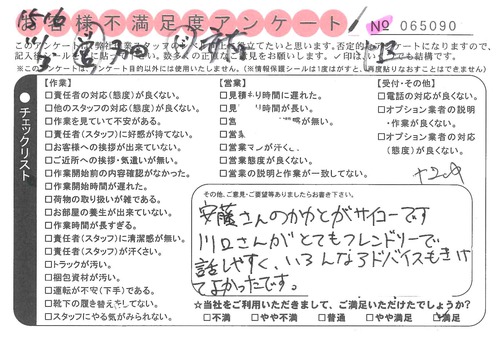 お客様不満足度アンケート
№ 065090
このアンケートは、
記入後
✓印は、いくつでも結構です。
※このアンケートは、アンケート目的以外には使用いたしません。(※情報保護シールは1度はがすと、再度貼りなおすことはできません)
●チェックリスト
【作業】
□責任者の対応(態度)が良くない。
□他のスタッフの対応(態度)が良くない。
□作業を見ていて不安がある。
□責任者(スタッフ)に好感が持てない。
□お客様への挨拶が出来ていない。
□ご近所への挨拶・気遣いが無い。
□作業開始前の内容確認がなかった。
□作業開始時間が遅れた。
□荷物の取り扱いが雑である。
□お部屋の養生が出来ていない。
□作業時間が長すぎる。
□責任者(スタッフ)に清潔感が無い。
□責任者(スタッフ)が汗くさい。
□トラックが汚い。
□梱包資材が汚い。
□運転が不安(下手)である。
□靴下の履き替えをしてない。
□スタッフにやる気がみられない。
【営業】
□見積もり時間に遅れた。
□見積もり時間が長い。
□営業 が無い。
□営業
□営業マンが汗くさい。
□営業態度が良くない。
□営業の説明と作業が一致してない。
【受付・その他】
□電話の対応が良くない。
□オプション業者の説明
・作業が良くない。
□オプション業者の対応
(態度)が良くない。
その他、ご意見・ご要望等ありましたらお書き下さい。
安藤さんのかかとがサイコーです
川口さんがとてもフレンドリーで
話しやすく、いろんなアドバイスもきけ
てよかったです。
☆当社をご利用いただきまして、ご満足いただけたでしょうか?
□不満 □やや不満 □普通 □やや満足 ☑満足